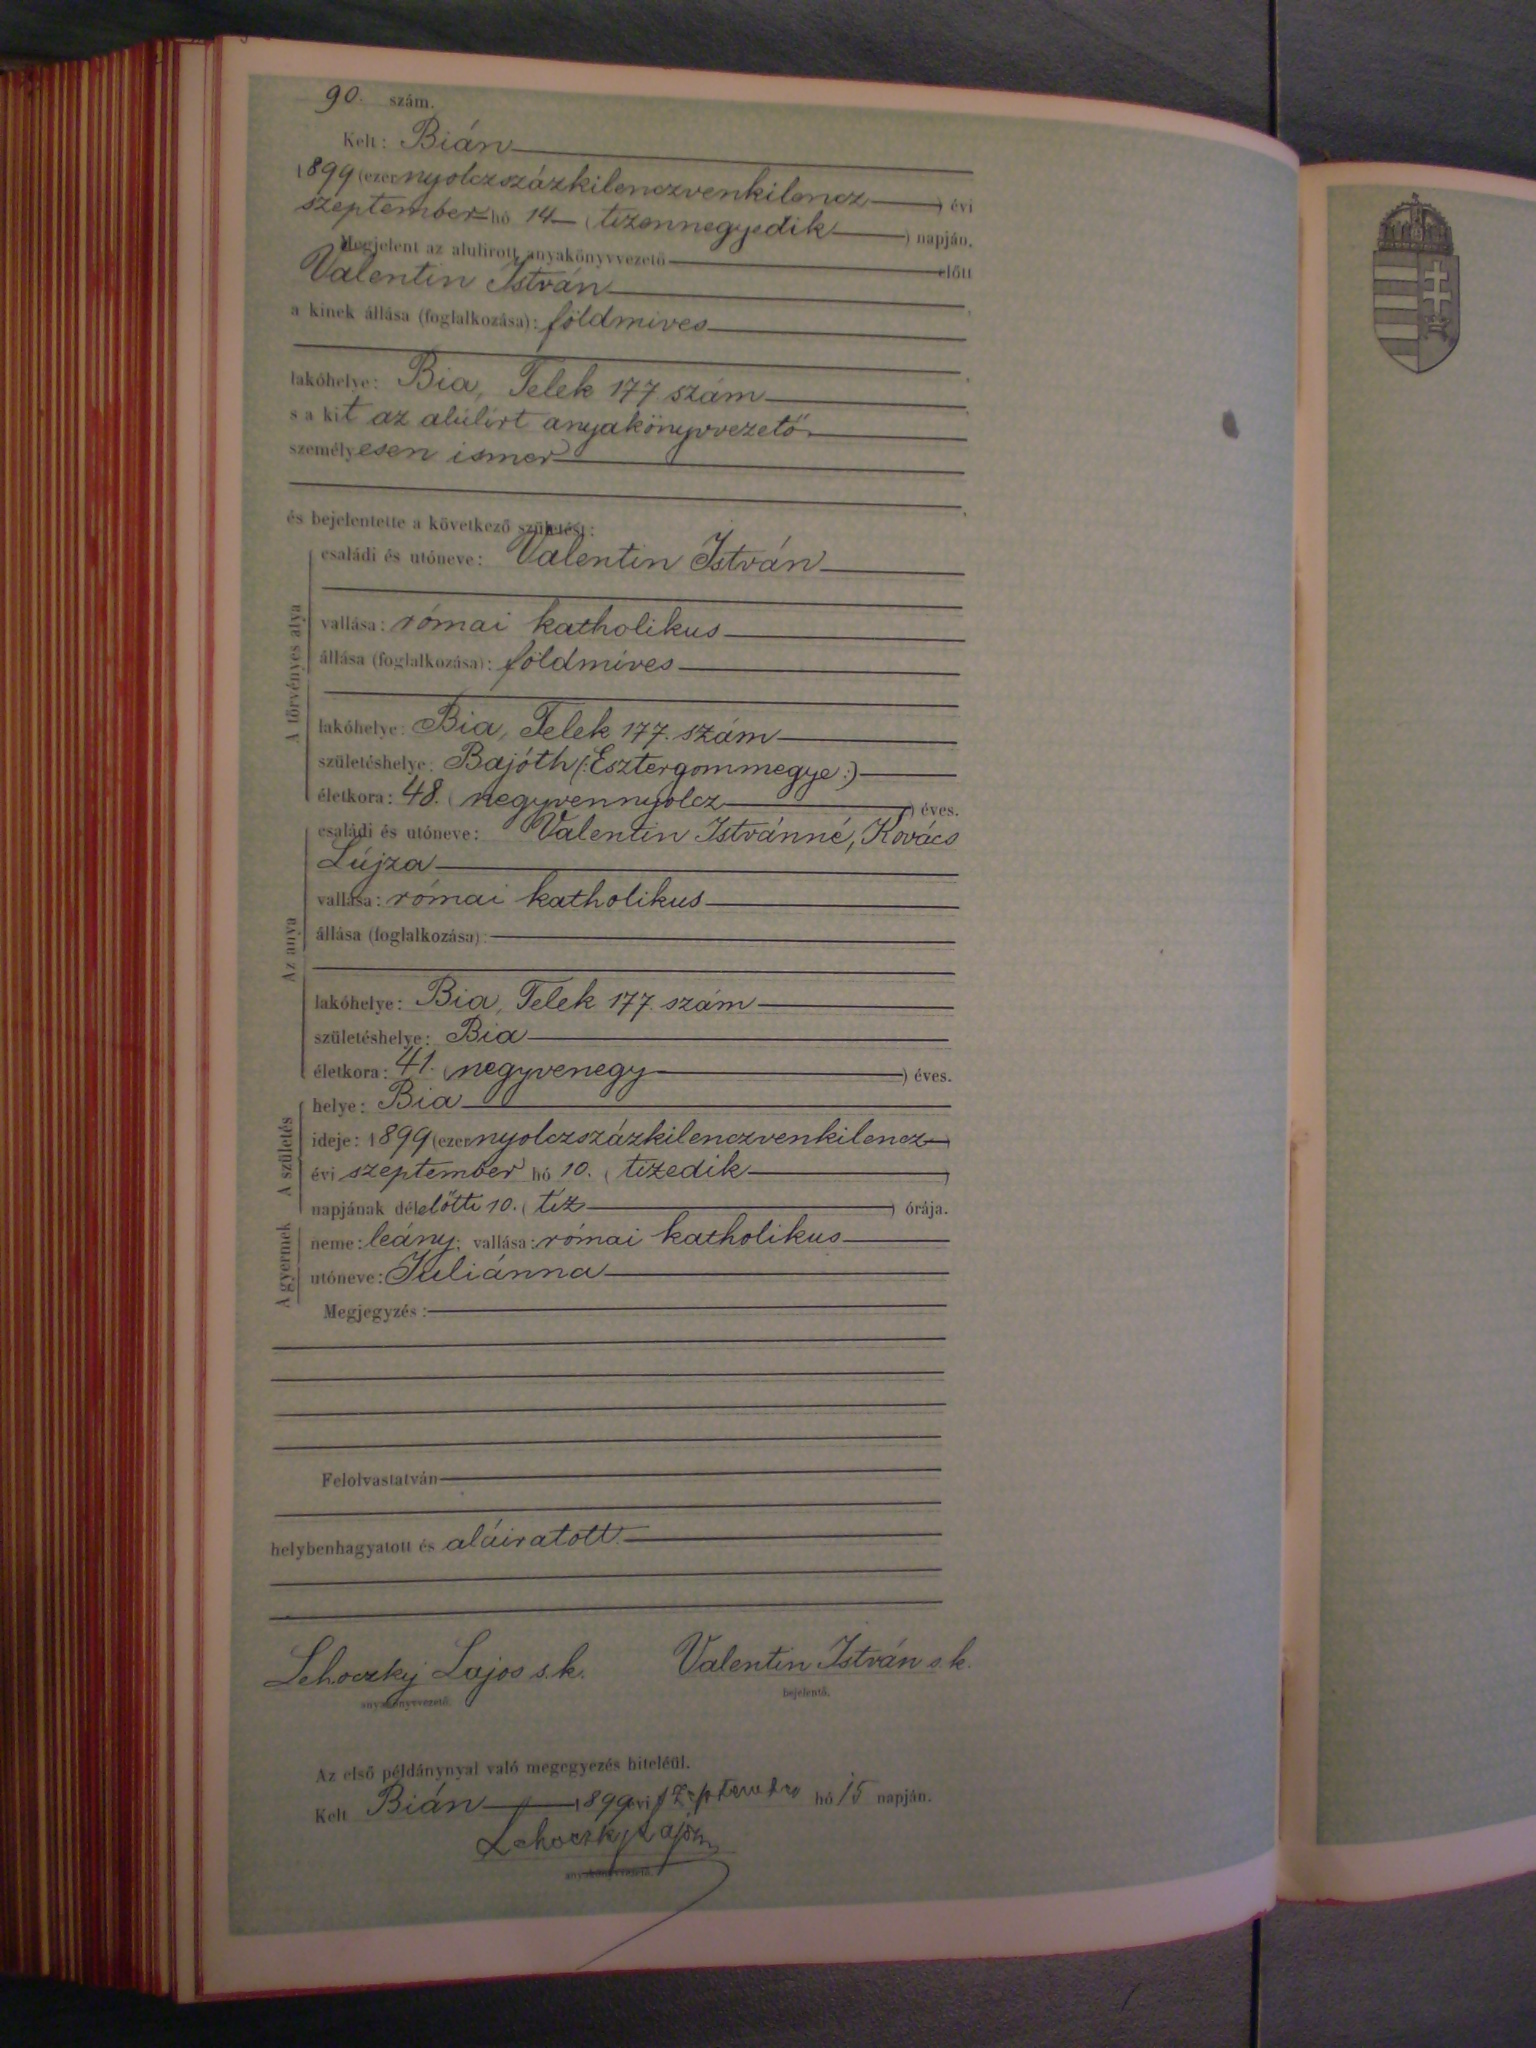 90. szám.
Kelt: Bián
1899 (ezernyolczszázkilenczvenkilencz) évi
szeptember hó 14 (tizennegyedik) napján.
Megjelent az alulirott anyakönyvvezető előtt
Valentin István
a kinek állása (foglalkozása): földmives
lakóhelye: Bia, Telek 177. szám
s a kit az alúlírt anyakönyvvezető
személyesen ismer
és bejelentette a következő születést:
A törvényes atya
családi és utóneve: Valentin István
vallása: római katholikus
állása (foglalkozása): földmives
lakóhelye: Bia, Telek 177. szám
születéshelye: Bajóth (:Esztergommegye:)
életkora: 48. (negyvennyolcz) éves.
Az anya
családi és utóneve: Valentin Istvánné, Kovács
Lújza
vallása: római katholikus
állása (foglalkozása):
lakóhelye: Bia, Telek 177. szám
születéshelye: Bia
életkora: 41. (negyvenegy) éves.
A születés
helye: Bia
ideje: 1899 (ezernyolczszázkilenczvenkilencz)
évi szeptember hó 10. (tizedik)
napjának délelőtti 10. (tíz) órája.
A gyermek
neme: leány; vallása: római katholikus
utóneve: Juliánna
Megjegyzés:
Felolvastatván
helybenhagyatott és aláiratott.
Lehoczky Lajos s.k. Valentin István s.k.
anyakönyvvezető. bejelentő.
Az első példánynyal való megegyezés hiteléül.
Kelt Bián 1899 évi szeptember hó 15 napján.
Lehoczky Lajos
anyakönyvvezető.